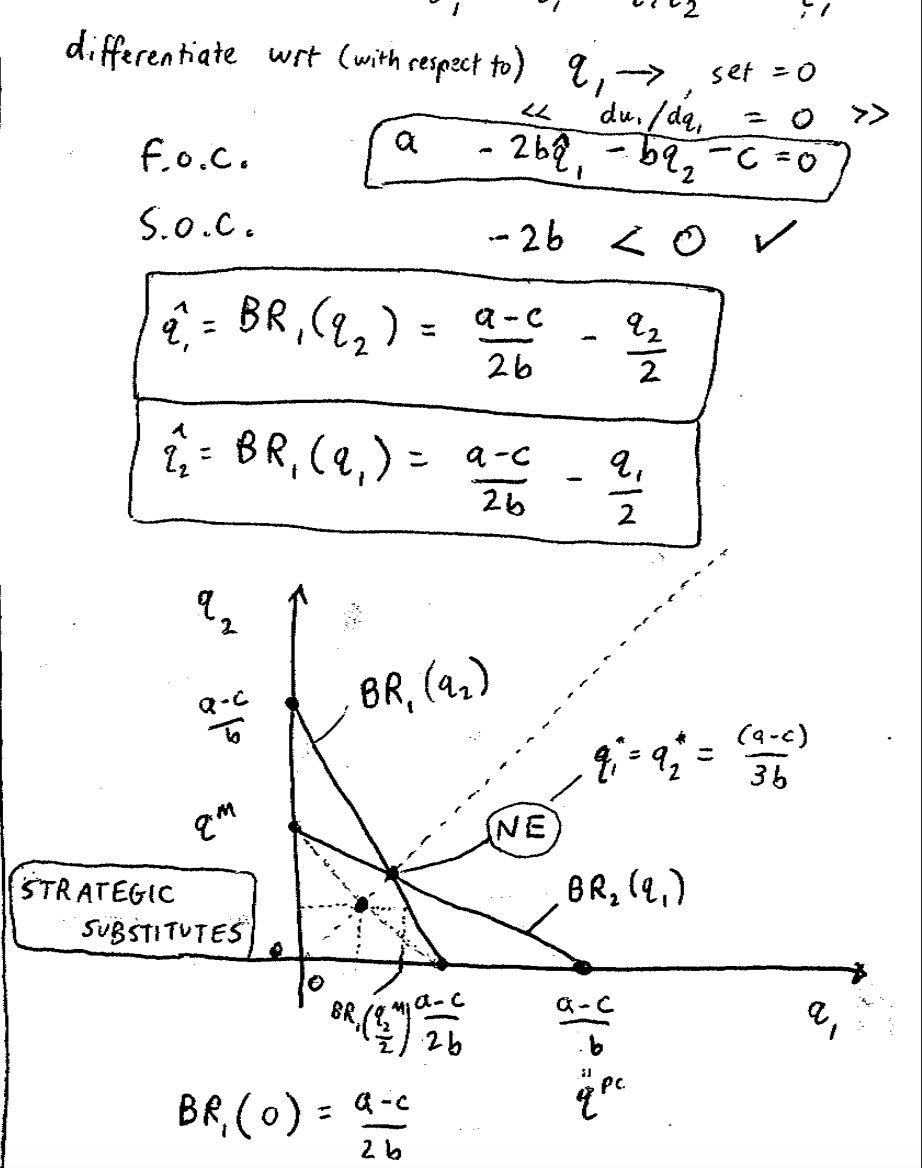 differentiate wrt (with respect to) q₁ → , set = 0
<< du₁/dq₁ = 0 >>
F.O.C. a - 2bq̂₁ - bq₂ - c = 0
S.O.C. -2b < 0 ✓
q̂₁ = BR₁(q₂) = (a-c)/2b - q₂/2
q̂₂ = BR₁(q₁) = (a-c)/2b - q₁/2
q₂
BR₁(q₂)
a-c/b
q₁* = q₂* = (a-c)/3b
qᴹ
NE
STRATEGIC
SUBSTITUTES
BR₂(q₁)
0
0
BR₁(q₂ᴹ/2)
a-c/2b
a-c/b
q₁
"
qᴾᶜ
BR₁(0) = a-c/2b